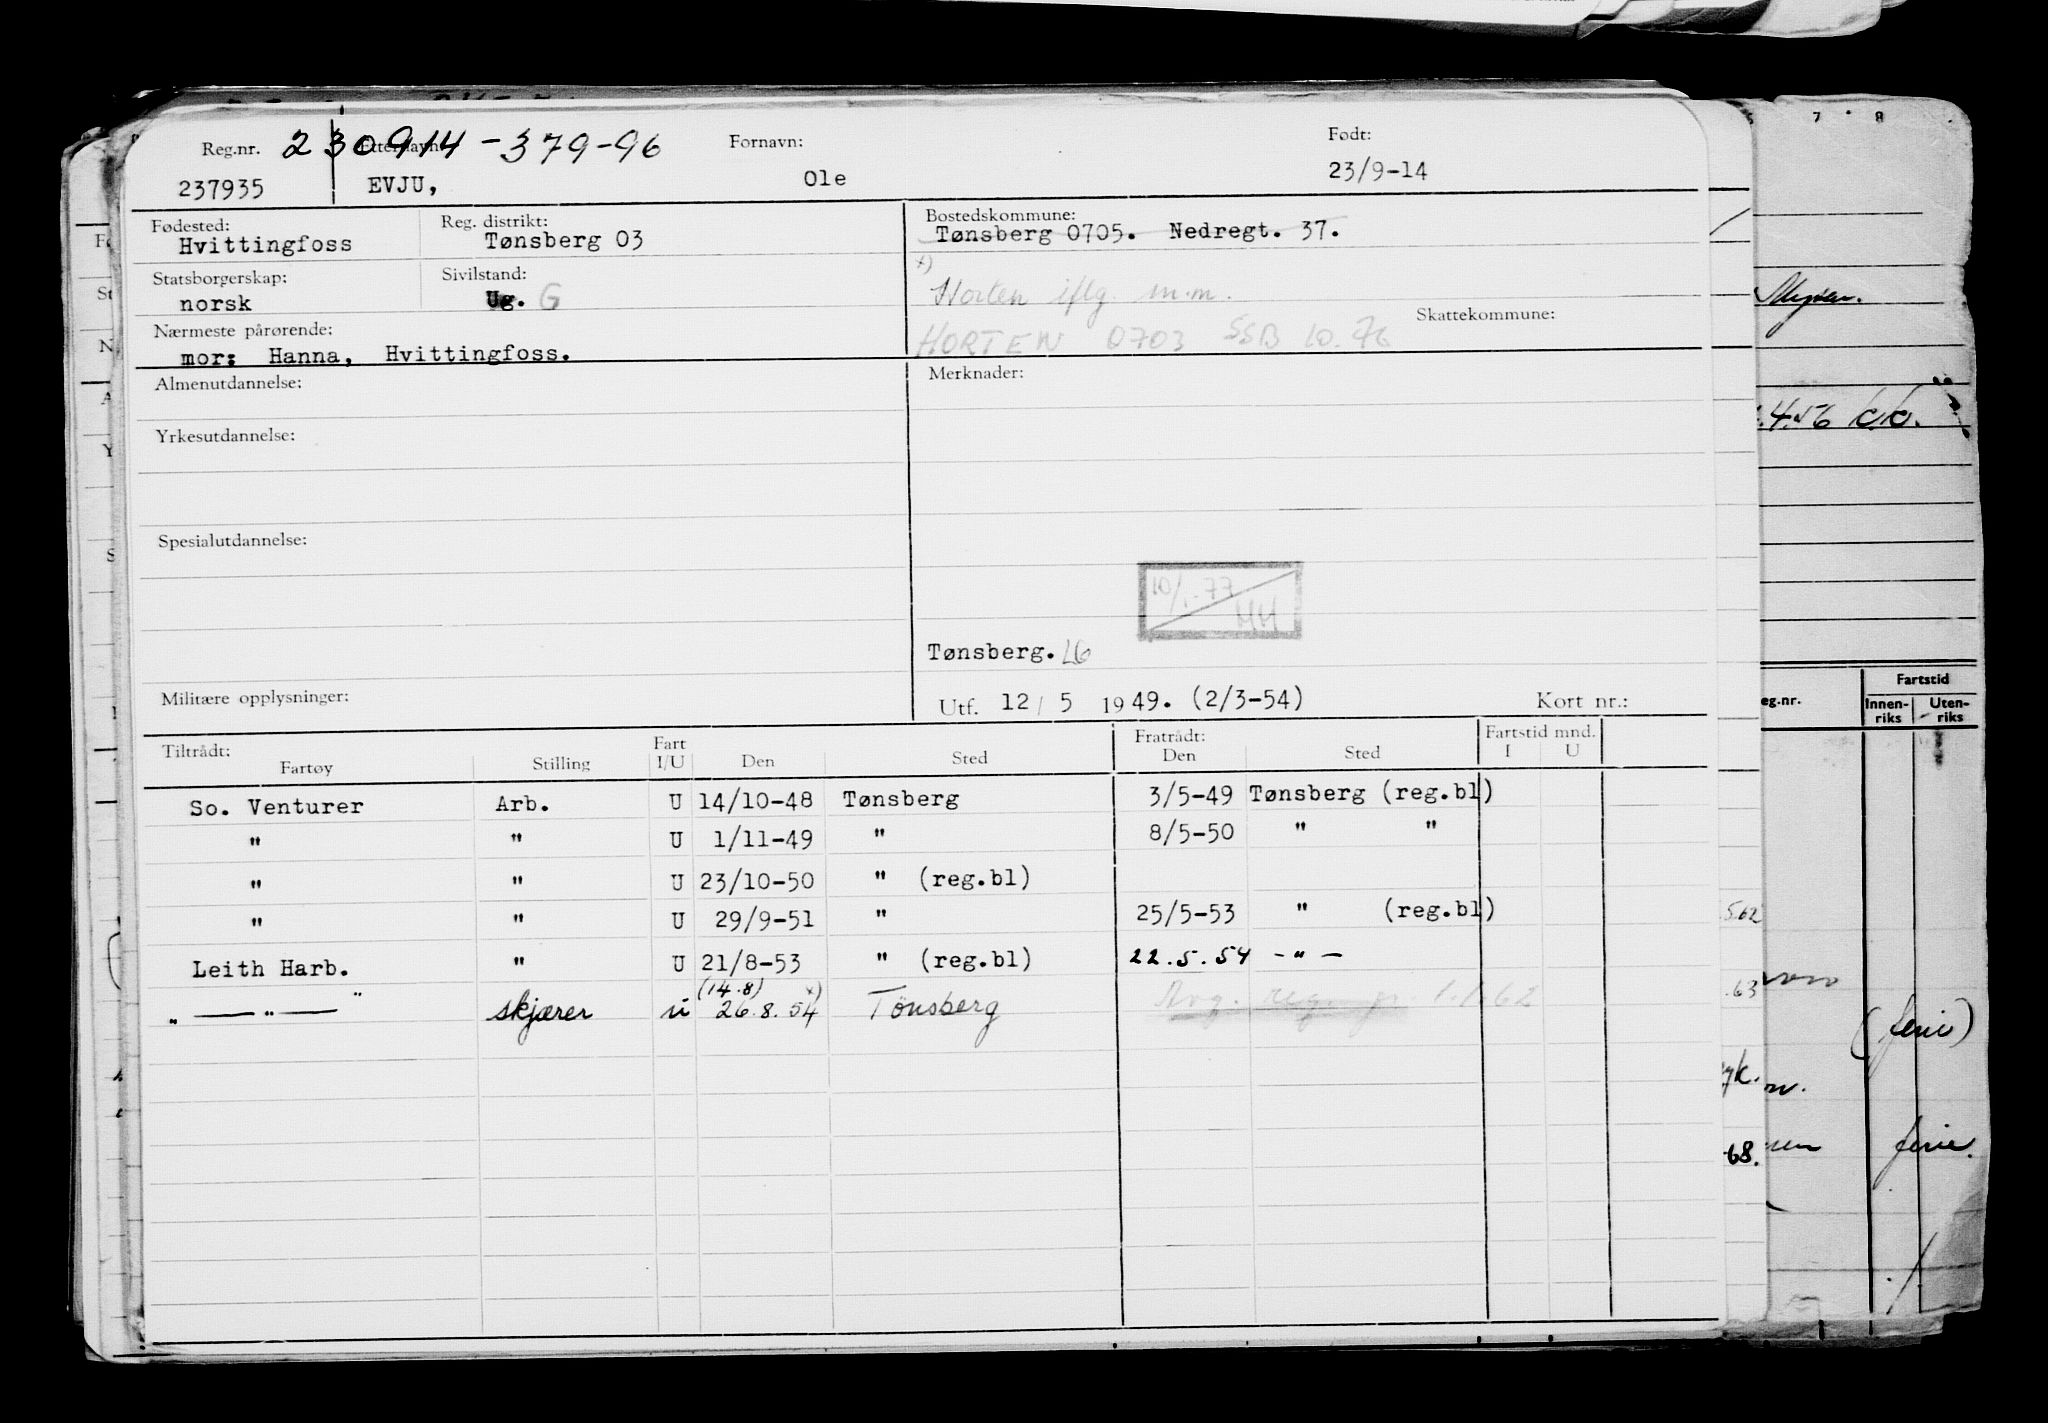 Reg.nr. 230914-379-96 Etternavn: Fornavn: Født:
237935 EVJU, Ole 23/9-14
Fødested: Reg. distrikt: Bostedskommune:
Hvittingfoss Tønsberg 03 Tønsberg 0705. Nedregt. 37.
Statsborgerskap: Sivilstand: x)
norsk Ug. G Horten iflg. m.m.
Nærmeste pårørende: Skattekommune:
mor: Hanna, Hvittingfoss. HORTEN 0703 SSB 10.76
Almenutdannelse: Merknader:
Yrkesutdannelse:
Spesialutdannelse:
10/1-77
HH
Tønsberg. LG
Militære opplysninger: Utf. 12/5 1949. (2/3-54) Kort nr.:
Tiltrådt: Fart Fratrådt: Fartstid mnd.
Fartøy Stilling I/U Den Sted Den Sted I U
So. Venturer Arb. U 14/10-48 Tønsberg 3/5-49 Tønsberg (reg.bl)
" " U 1/11-49 " 8/5-50 " "
" " U 23/10-50 " (reg.bl)
" " U 29/9-51 " 25/5-53 " (reg.bl)
Leith Harb. " U 21/8-53 " (reg.bl) 22.5.54 -"-
(14.8) x)
" — " — " skjærer u 26.8.54 Tönsberg Avg. reg. pr. 1.1.62
7 8
.4.56
eg.nr. Fartstid
Innen-riks Uten-riks
5.62
.63
(ferie)
ferie.
-68.